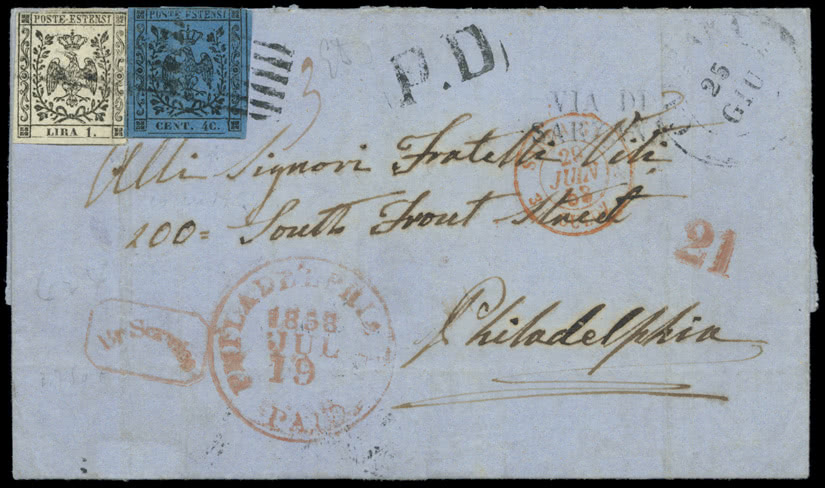 POSTE-ESTENSI
LIRA 1.
POSTE-ESTENSI
CENT. 4C.
3
P.D
VIA DI
25
GIU
29
JUIN
58
Alli Signori Fratelli Viti
200= South Front Street
21
Philadelphia
Br Service
PHILADELPHIA
1858
JUL
19
PAID